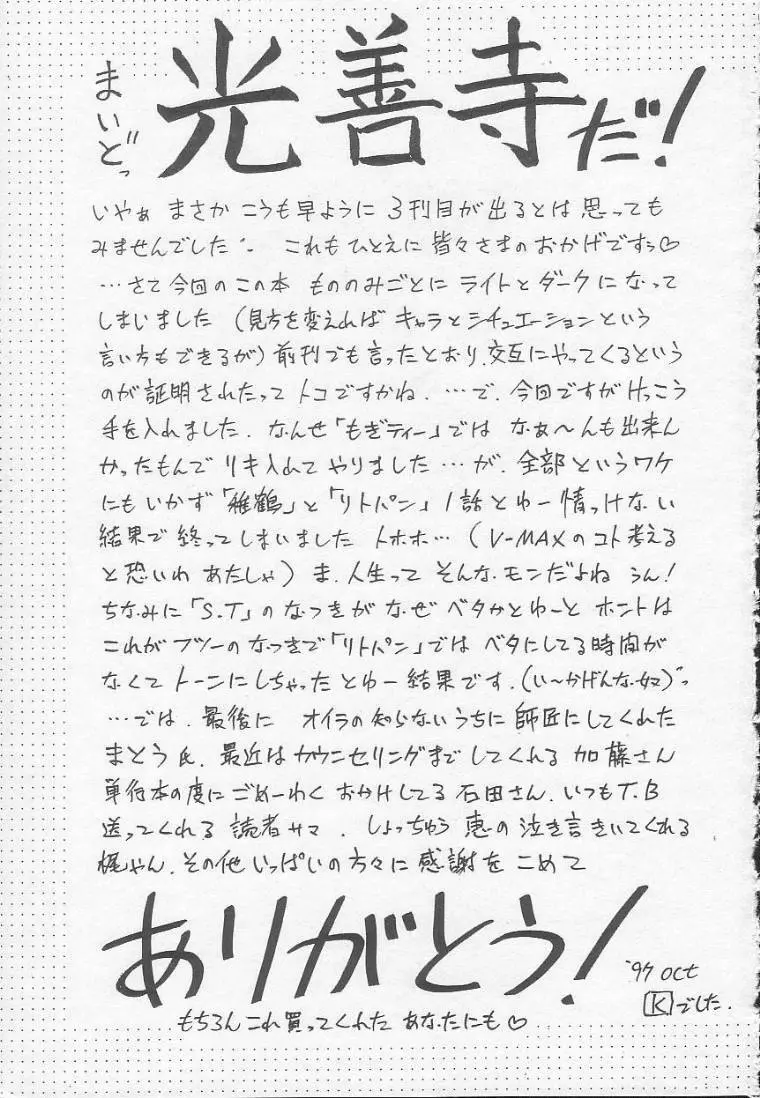 まいどっ
光善寺だ！
いやぁ まさか こうも早ように 3刊目が出るとは 思っても
みませんでした‥ これもひとえに 皆々さまのおかげですぅ♡
…さて今回のこの本 もののみごとに ライトとダークになって
しまいました （見方を変えれば キャラとシチュエーションという
言い方もできるが）前刊でも言ったとおり、交互にやってくるという
のが証明されたって トコですかね．…で．今回ですがけっこう
手を入れました．なんせ「もぎティー」では なぁ〜んも出来ん
かったもんで リキ入れて やりました…が．全部というワケ
にもいかず「雅鶴」と「リトパン」1話とゆー情っけない
結果で 終ってしまいました トホホ…（V-MAXのコト考える
と恐いわ あたしゃ）ま．人生って そんなモンだよね うん！
ちなみに「S.T」のなつきが なぜ ベタかとゆーと ホントは
これがフツーのなつきで「リトパン」では ベタにしてる時間が
なくて トーンにしちゃったとゆー結果です．（い〜かげんな奴）
…では．最後に オイラの知らないうちに 師匠にしてくれた
まとう氏．最近は カウンセリングまで してくれる 加藤さん
単行本の度に ごめーわく おかけしてる 石田さん．いつもT.B
送ってくれる 読者サマ．しょっちゅう 恵の泣き言きいてくれる
梶やん．その他 いっぱいの方々に 感謝を こめて
ありがとう！
'97 oct
Kでした．
もちろん これ買ってくれた あなたにも♡